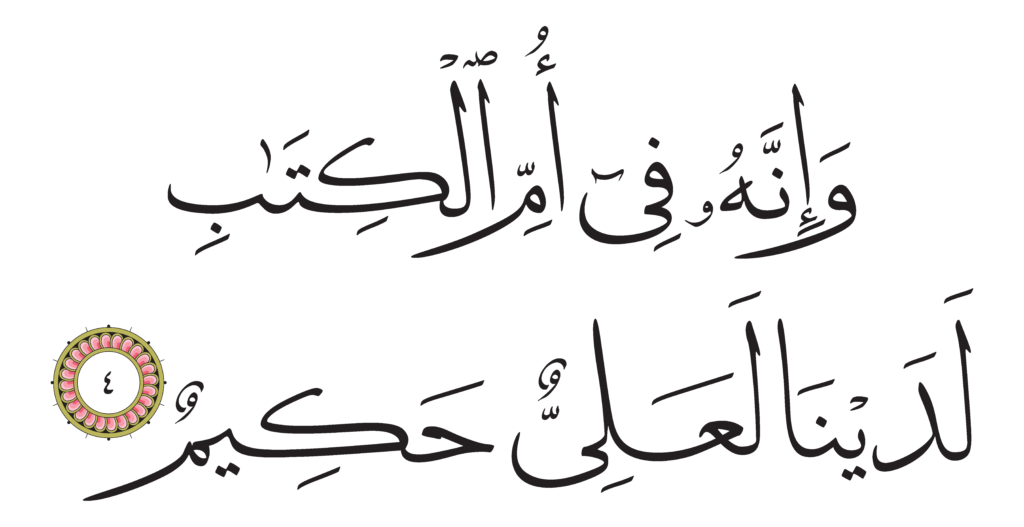 وَإِنَّهُۥ فِىٓ أُمِّ ٱلْكِتَـٰبِ
لَدَيْنَا لَعَلِىٌّ حَكِيمٌ ٤